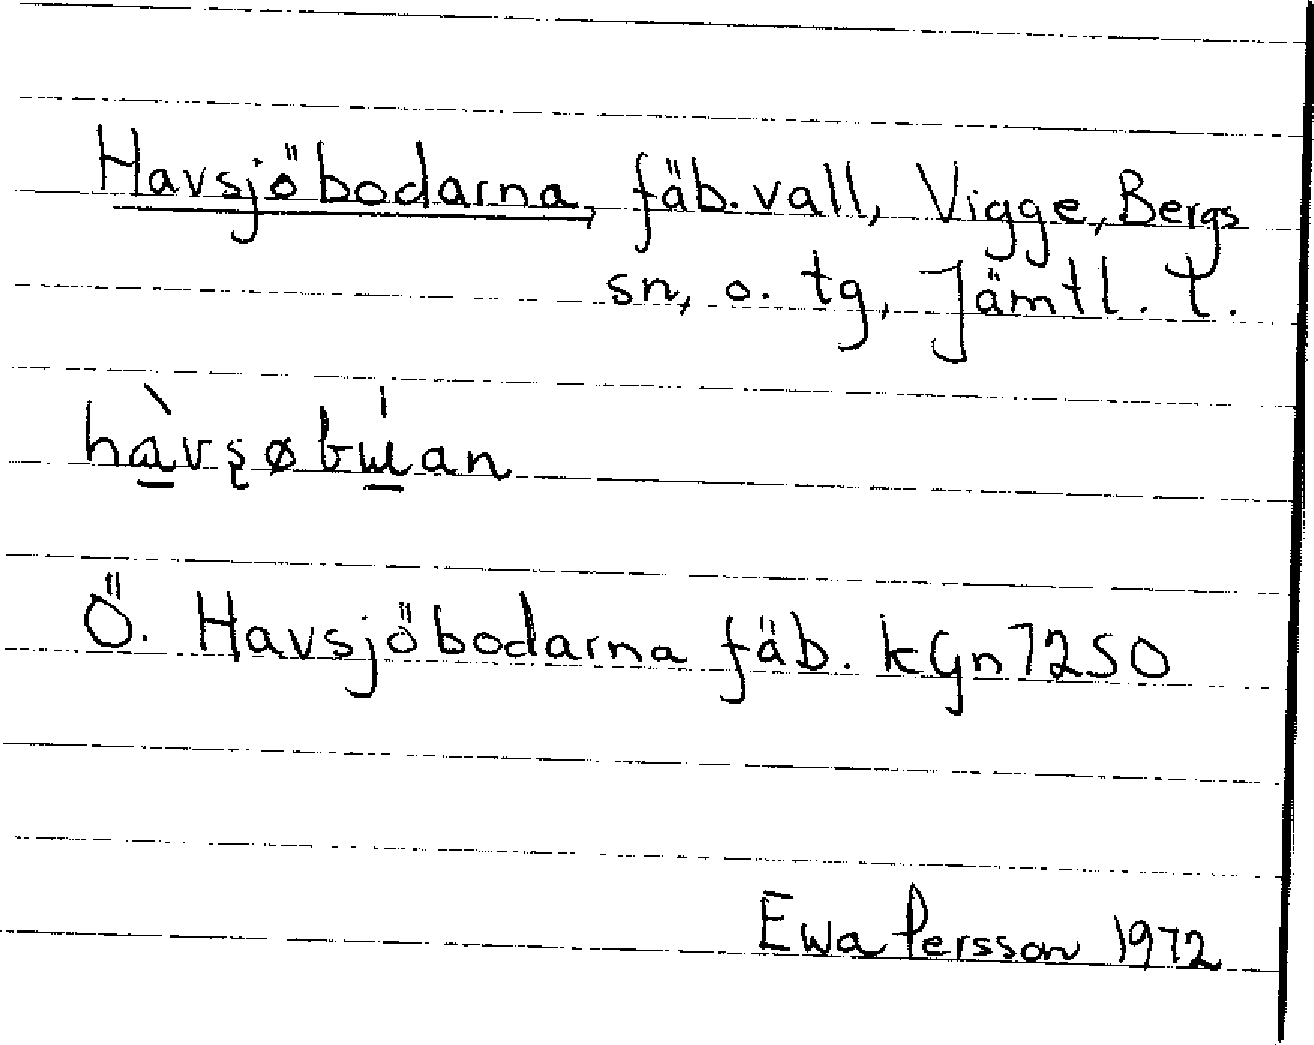 Havsjöbodarna, fäb.vall, Vigge, Bergs
sn, o. tg, Jämtl. l.
hàvşøbɯ́an
Ö. Havsjöbodarna fäb. kGn7250
Ewa Persson 1972